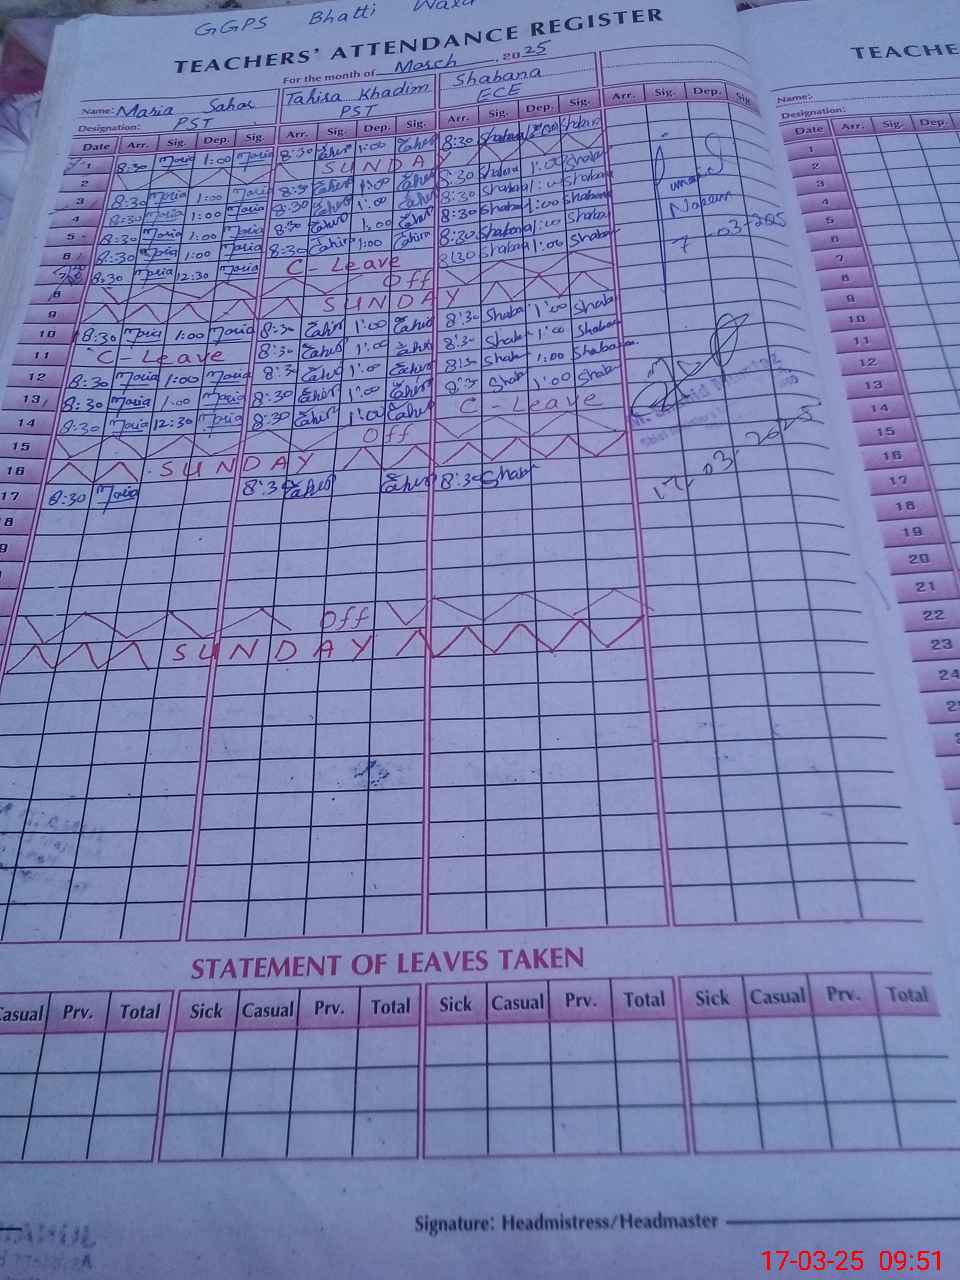 GGPS Bhatti
TEACHERS' ATTENDANCE REGISTER
For the month of March 2025
Name: Maria Sahar Tahira Khadim Shabana
Designation: PST PST ECE
Date Arr. Sig. Dep. Sig. Arr. Sig. Dep. Sig. Arr. Sig. Dep. Sig. Arr. Sig. Dep. Sig.
1 8:30 Maria 1:00 Maria 8:30 Tahira 1:00 Tahira 8:30 Shabana 1:00 Shabana
2 SUNDAY
3 8:30 Maria 1:00 Maria 8:30 Tahira 1:00 Tahira 8:30 Shabana 1:00 Shabana
4 8:30 Maria 1:00 Maria 8:30 Tahira 1:00 Tahira 8:30 Shabana 1:00 Shabana
5 8:30 Maria 1:00 Maria 8:30 Tahira 1:00 Tahira 8:30 Shabana 1:00 Shabana
6 8:30 Maria 1:00 Maria 8:30 Tahira 1:00 Tahira 8:30 Shabana 1:00 Shabana
8:30 Maria 12:30 Maria C-Leave 8:30 Shabana 1:00 Shabana
Off
9 SUNDAY
10 8:30 Maria 1:00 Maria 8:30 Tahir 1:00 Tahir 8:30 Shaba 1:00 Shaba
11 C-Leave 8:30 Tahir 1:00 Tahir 8:30 Shaba 1:00 Shaban
12 8:30 Maria 1:00 Maria 8:30 Tahir 1:00 Tahir 8:30 Shab 1:00 Shabana
13 8:30 Maria 1:00 Maria 8:30 Tahir 1:00 Tahir 8:30 Shab 1:00 Shab
14 8:30 Maria 12:30 Maria 8:30 Tahir 1:00 Tahir C-Leave
15 Off
16 SUNDAY
17 8:30 Maria 8:30 Tahir Tahir 8:30 Shab
8
9
Off
SUNDAY
Naeem
7-03-2025
17.03.2025
STATEMENT OF LEAVES TAKEN
Casual Prv. Total Sick Casual Prv. Total Sick Casual Prv. Total Sick Casual Prv. Total
Signature: Headmistress/Headmaster
TEACHE
Name:
Designation:
Date Arr. Sig. Dep.
1
2
3
4
5
6
7
8
9
10
11
12
13
14
15
16
17
18
19
20
21
22
23
24
17-03-25 09:51